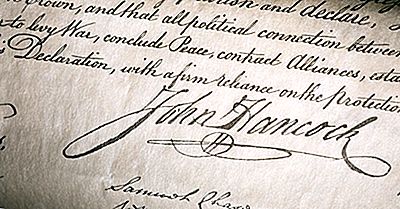 Crown, and that all political connection between
to levy War, conclude Peace, contract Alliances, esta
Declaration, with a firm reliance on the Protection
John Hancock
Samuel Chase